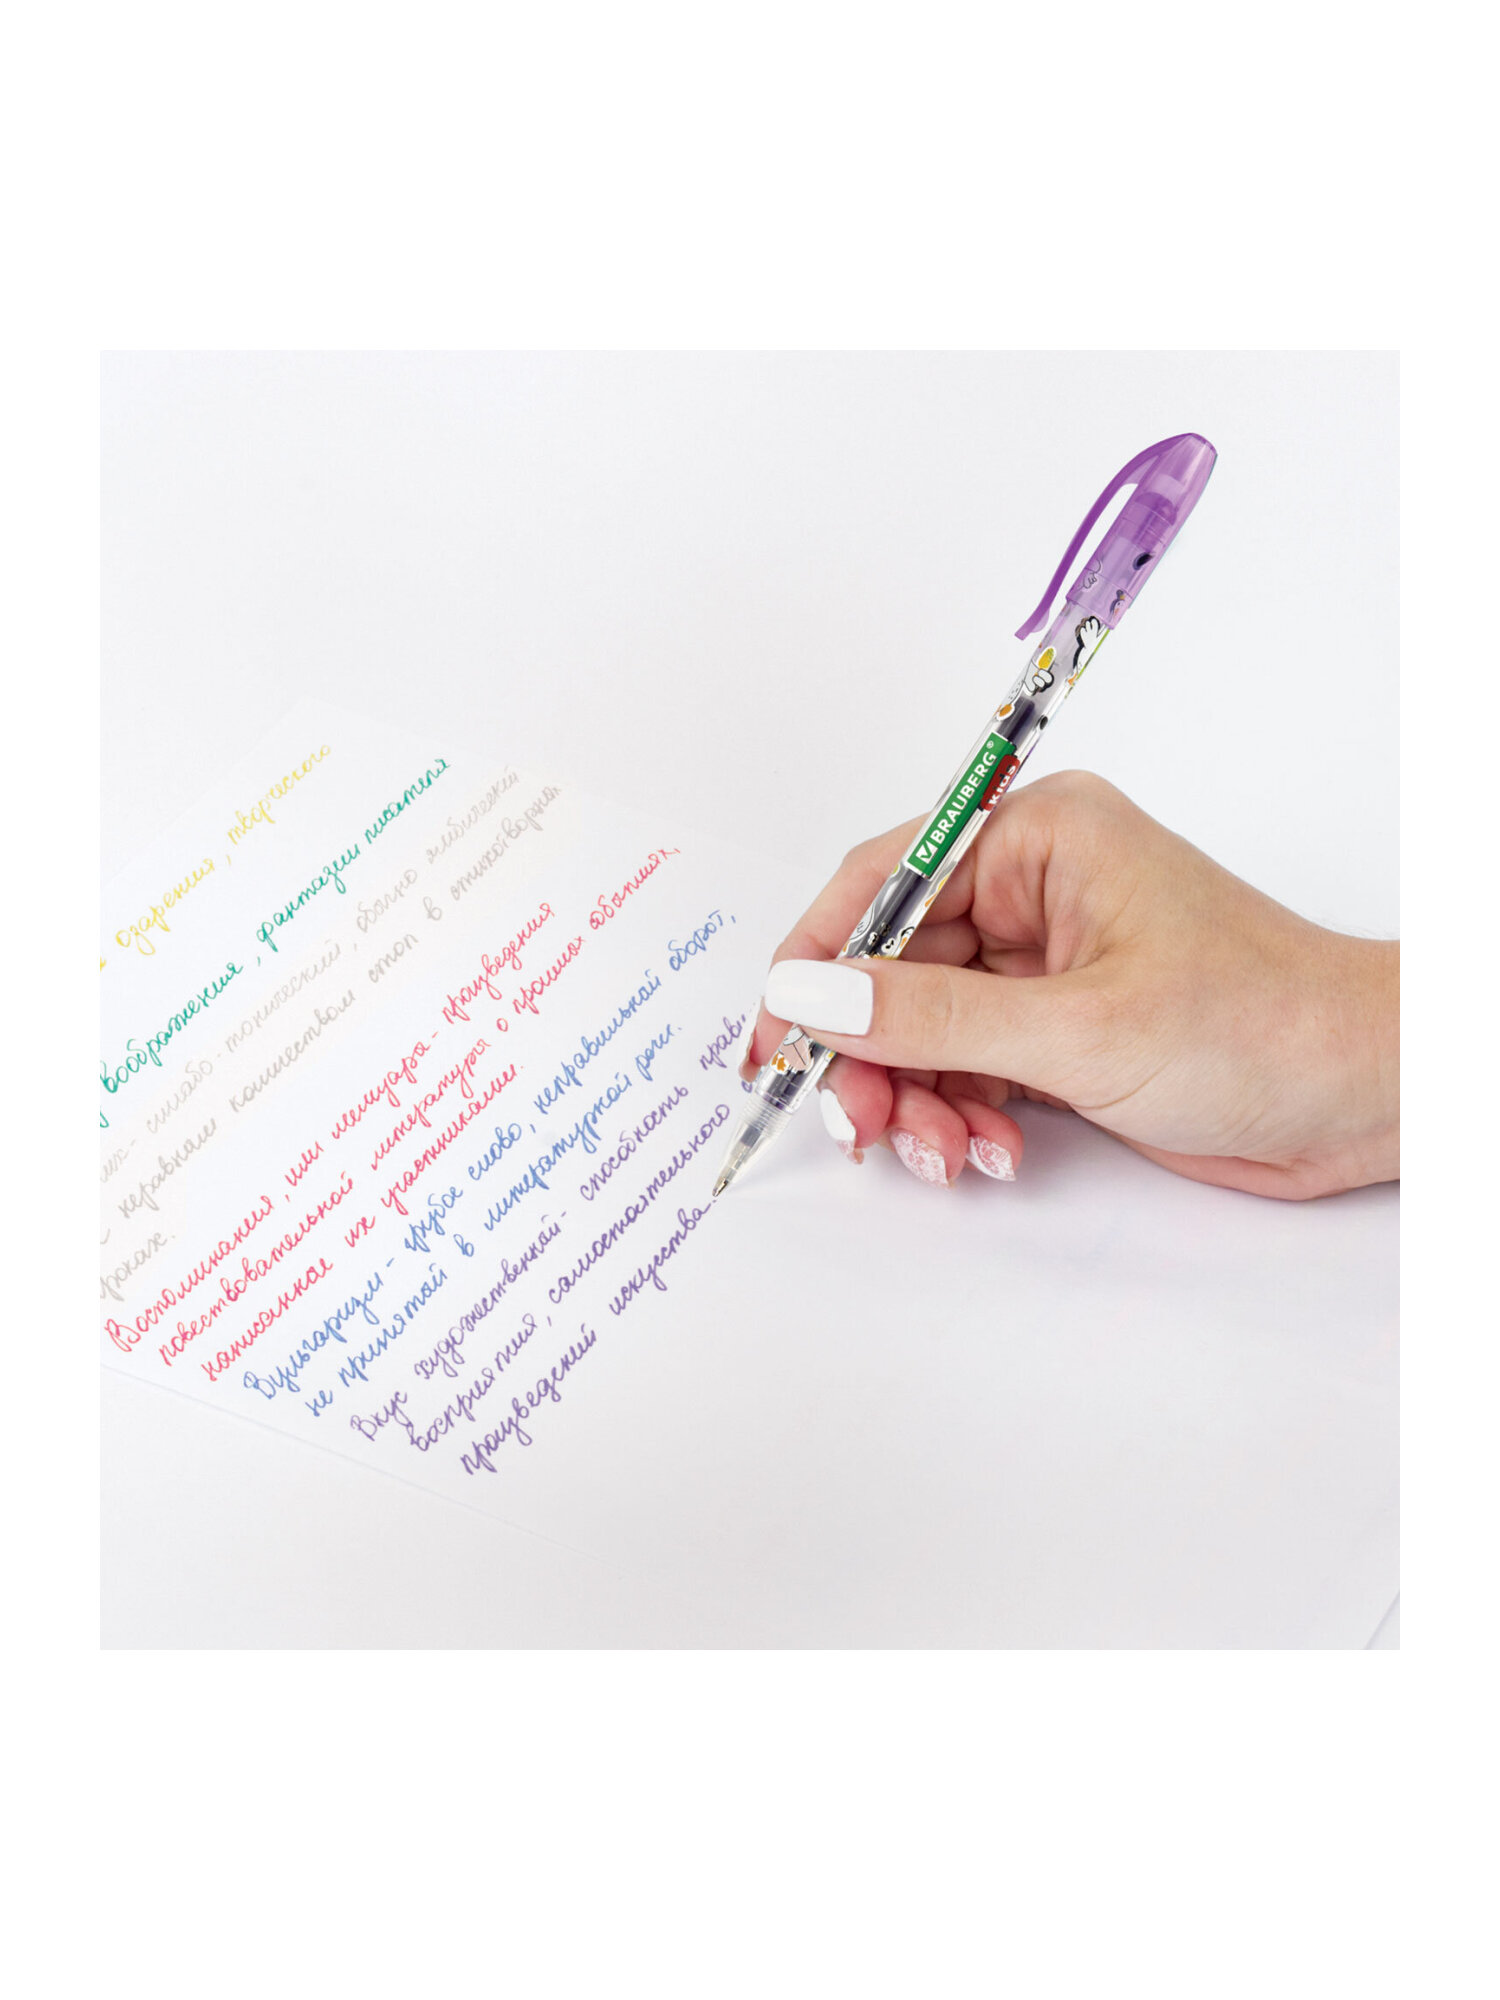 озарения, творческого
воображения, фантазии писателя
силлабо-тонический, обычно ямбический
с неравным количеством стоп в стихотворных
строках.
Воспоминания, или мемуары - произведения
повествовательной литературы о прошлых событиях,
написанное их участниками.
Вульгаризм - грубое слово, неправильный оборот,
не принятый в литературной речи.
Вкус художественный - способность прави
восприятия, самостоятельного с
произведений искусства.
BRAUBERG®
KIDS